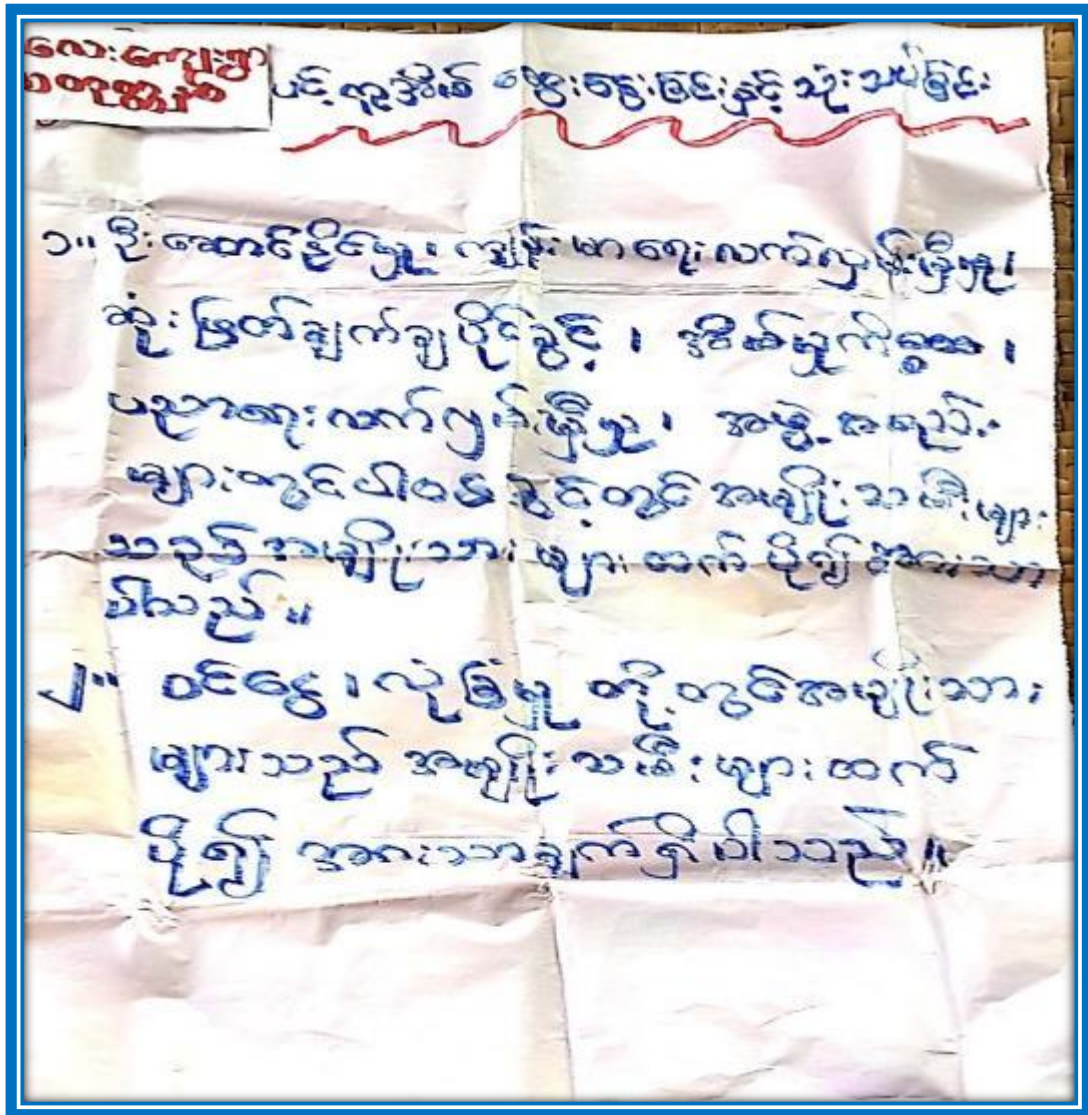 လေးကျေးရွာ
ပင့်ကူအိမ် ဆွေးနွေးခြင်းနှင့် သုံးသပ်ခြင်း
၁။ ဦးဆောင်နိုင်မှု၊ ကျန်းမာရေးလက်လှမ်းမှီမှု၊
ဆုံးဖြတ်ချက်ချပိုင်ခွင့်၊ အိမ်မှုကိစ္စ၊
ပညာရေးလက်လှမ်းမှီမှု၊ အဖွဲ့အစည်း
များတွင်ပါဝင်ခွင့်တွင် အမျိုးသမီးများ
သည် အမျိုးသားများထက် ပို၍ အားသာ
ပါသည်။
၂။ ဝင်ငွေ၊ လုံခြုံမှု တို့တွင်အမျိုးသား
များသည် အမျိုးသမီးများထက်
ပို၍ အားသာချက်ရှိပါသည်။